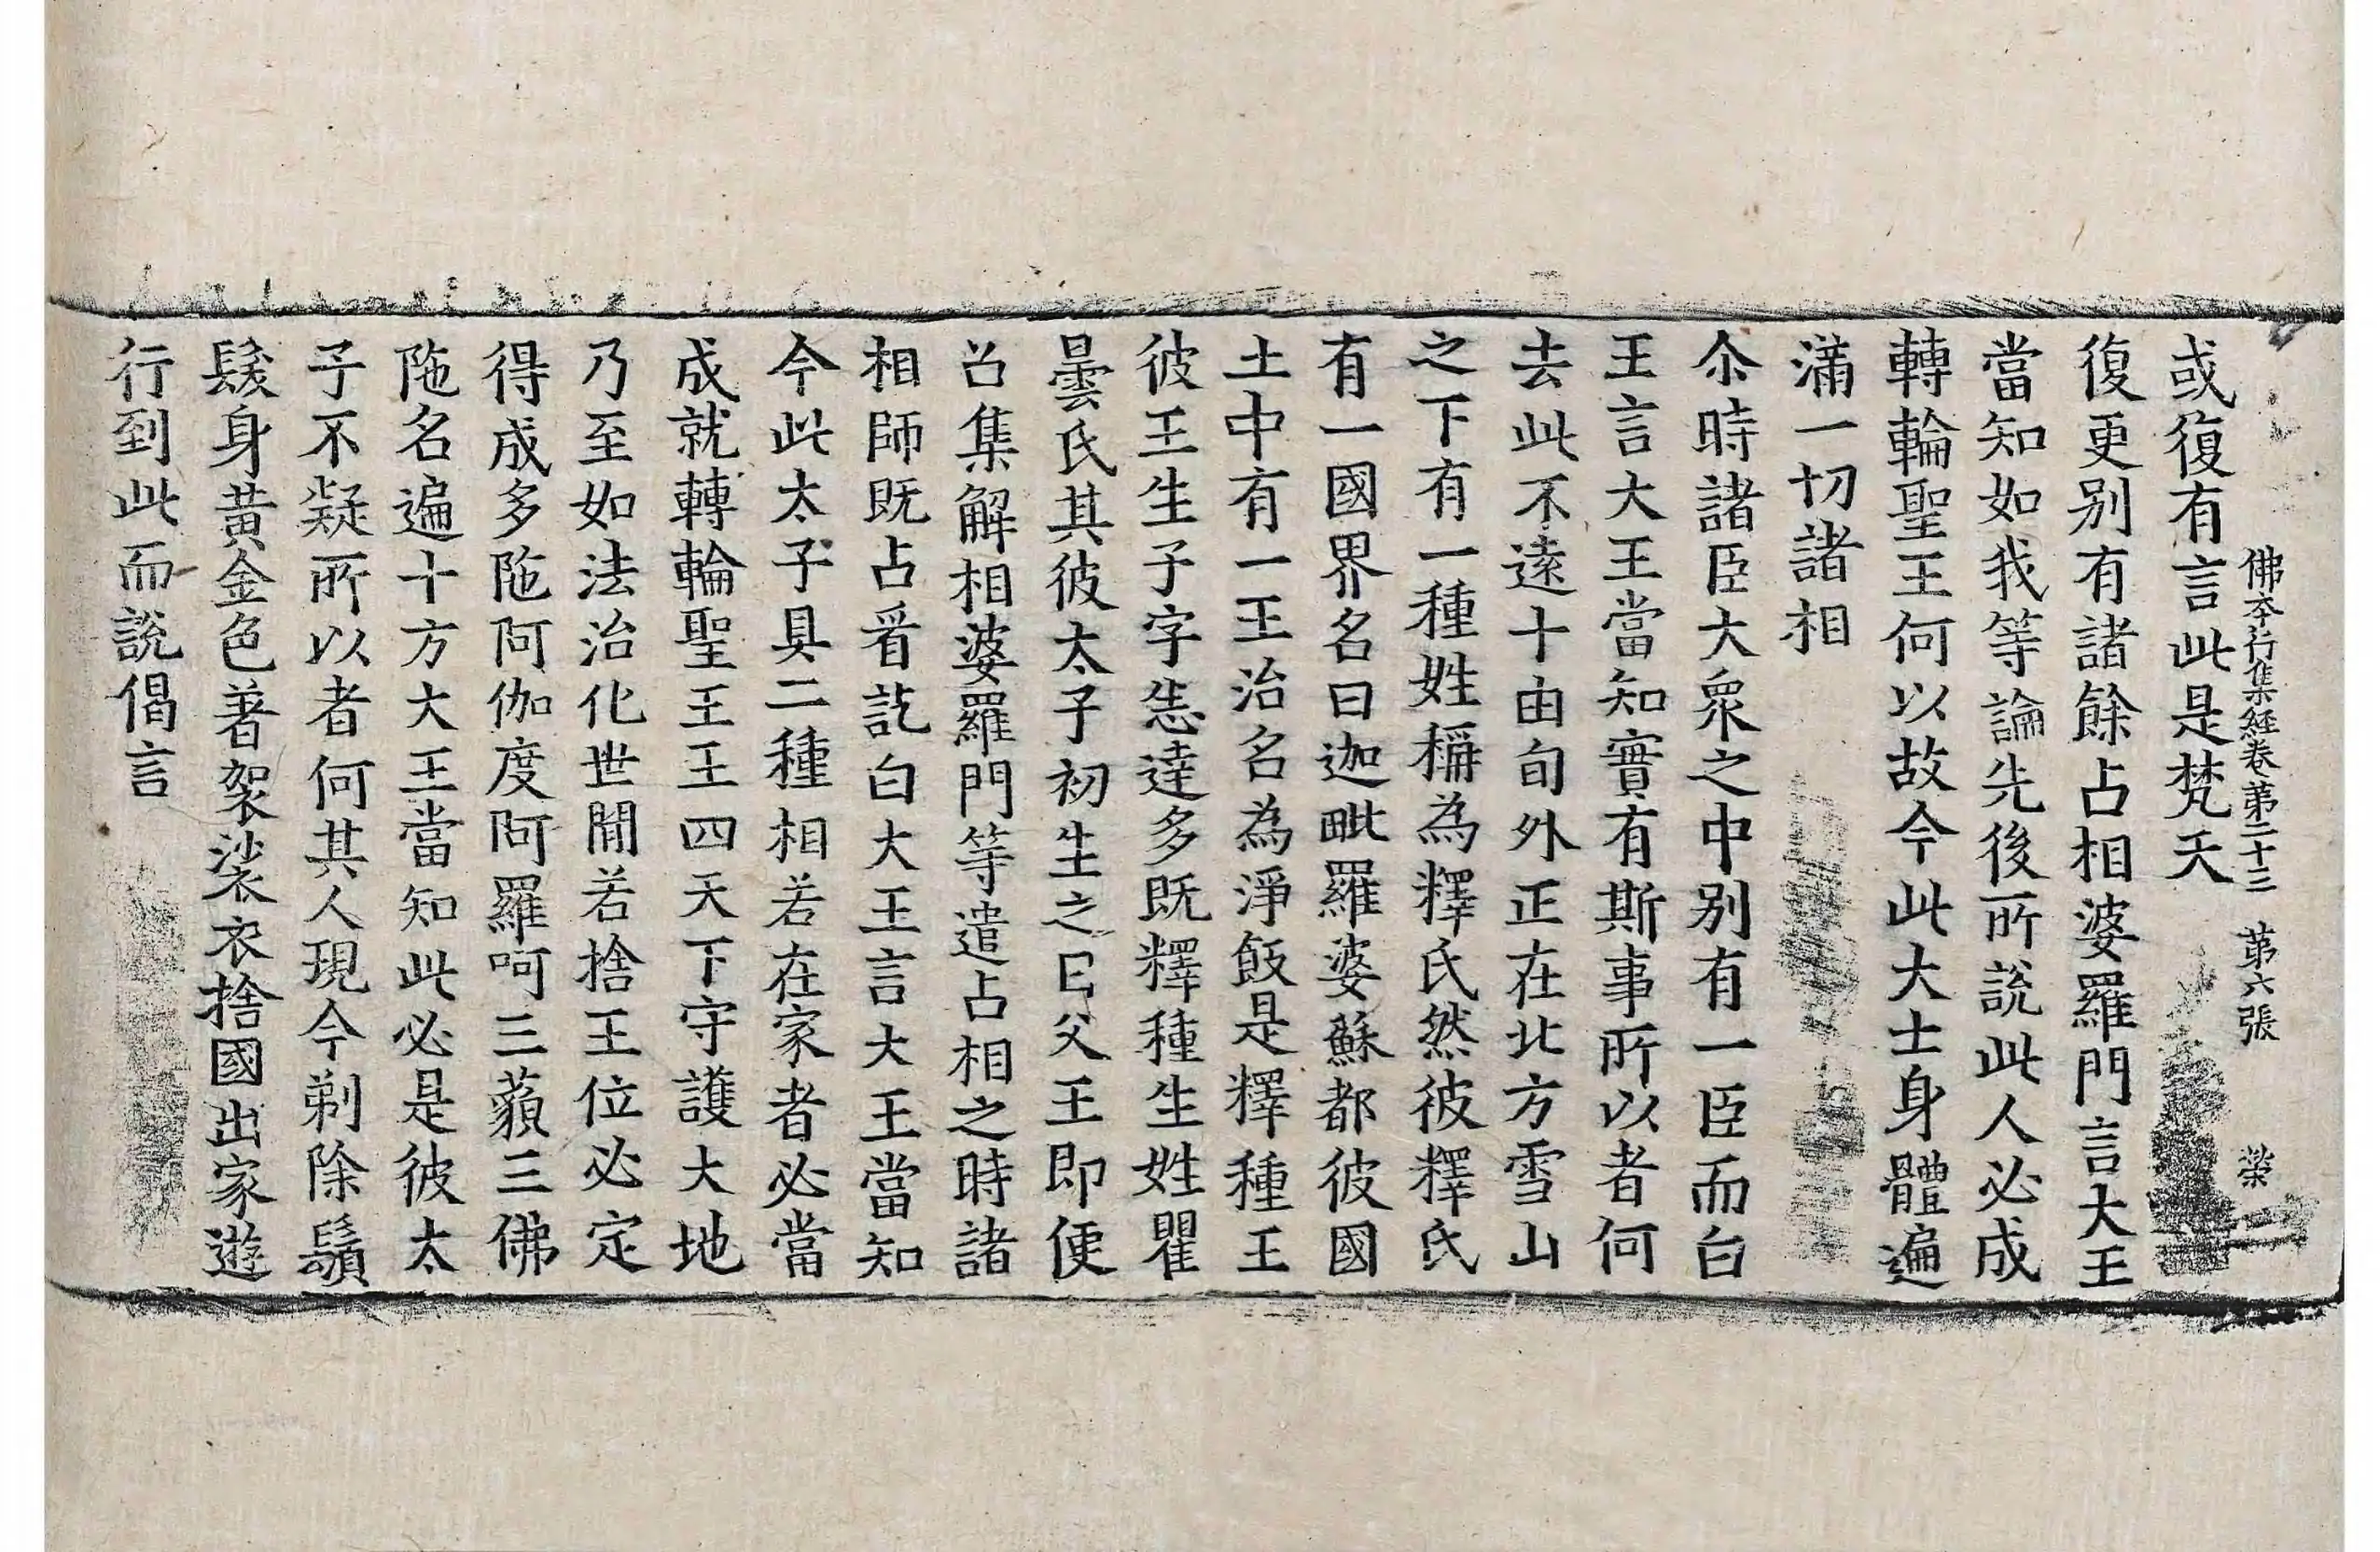 佛夲行集經卷第二十三 第六張 榮
或復有言此是梵天
復更别有諸餘占相婆羅門言大王
當知如我等論先後所說此人必成
轉輪聖王何以故今此大士身體遍
滿一切諸相
尒時諸臣大衆之中别有一臣而白
王言大王當知實有斯事所以者何
去此不遠十由旬外正在北方雪山
之下有一種姓稱為釋氏然彼釋氏
有一國界名曰迦毗羅婆蘇都彼國
土中有一王治名為淨飯是釋種王
彼王生子字悉達多既釋種生姓瞿
曇氏其彼太子初生之已父王即便
召集解相婆羅門等遣占相之時諸
相師既占看訖白大王言大王當知
今此太子具二種相若在家者必當
成就轉輪聖王王四天下守護大地
乃至如法治化世間若捨王位必定
得成多陁阿伽度阿羅呵三藐三佛
陁名遍十方大王當知此必是彼太
子不疑所以者何其人現今剃除鬚
髮身黃金色著袈裟衣捨國出家遊
行到此而說偈言